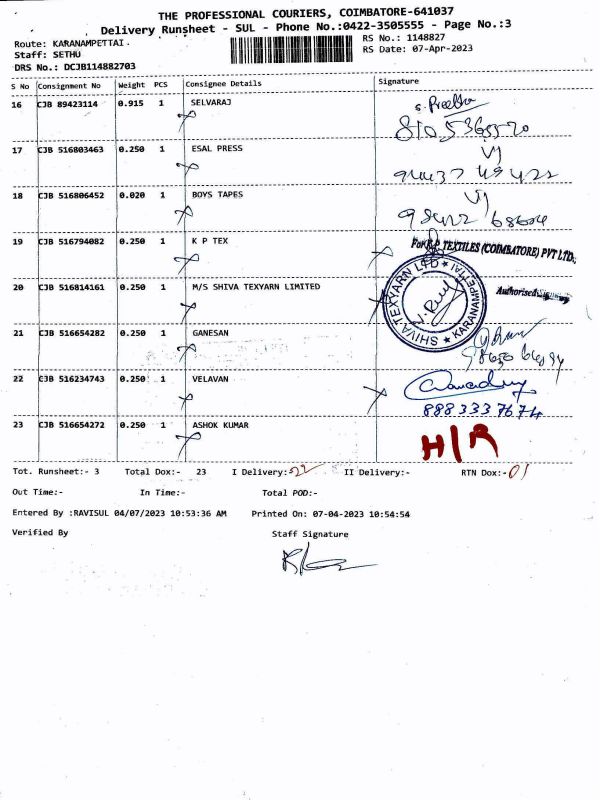 THE PROFESSIONAL COURIERS, COIMBATORE-641037
Delivery Runsheet - SUL - Phone No.:0422-3505555 - Page No.:3
Route: KARANAMPETTAI. RS No.: 1148827
Staff: SETHU RS Date: 07-Apr-2023
DRS No.: DCJB114882703
S No Consignment No Weight PCS Consignee Details Signature
16 CJB 89423114 0.915 1 SELVARAJ
S. Preetha
17 CJB 516803463 0.250 1 ESAL PRESS
18 CJB 516806452 0.020 1 BOYS TAPES
19 CJB 516794082 0.250 1 K P TEX
For K.P TEXTILES (COIMBATORE) PVT LTD.,
20 CJB 516814161 0.250 1 M/S SHIVA TEXYARN LIMITED
Authorised Signatory
SHIVA TEXYARN LTD ★ KARANAMPETTAI ★
21 CJB 516654282 0.250 1 GANESAN
22 CJB 516234743 0.250 1 VELAVAN
888 333 7674
23 CJB 516654272 0.250 1 ASHOK KUMAR
H/R
Tot. Runsheet:- 3 Total Dox:- 23 I Delivery:-22 II Delivery:- RTN Dox:-01
Out Time:- In Time:- Total POD:-
Entered By :RAVISUL 04/07/2023 10:53:36 AM Printed On: 07-04-2023 10:54:54
Verified By Staff Signature